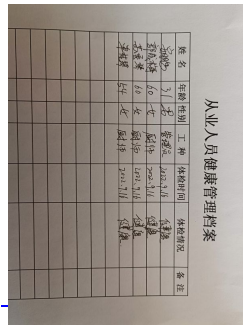 从业人员健康管理档案
姓名 年龄 性别 工种 体检时间 体检情况 备注
31 管理员 2022.9.16 健康
60 女 厨师 2022.9.16 健康
60 女 厨师 2022.9.16 健康
54 女 厨师 2022.9.16 健康